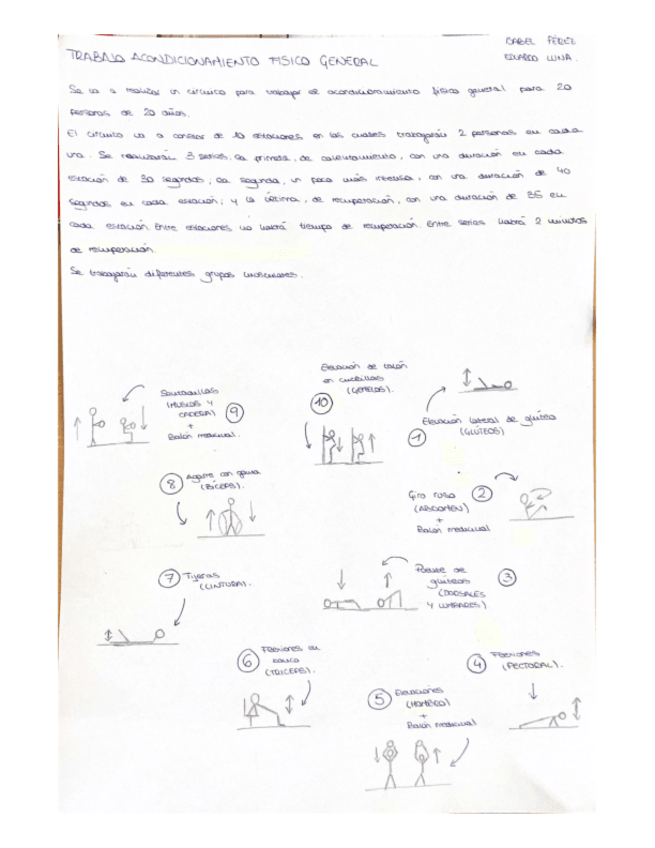 ISABEL PÉREZ
EDUARDO LUNA.
TRABAJO ACONDICIONAMIENTO FÍSICO GENERAL
Se va a realizar un circuito para trabajar el acondicionamiento físico general para 20
personas de 20 años.
El circuito va a constar de 10 estaciones en las cuales trabajarán 2 personas en cada
una. Se realizarán 3 series. La primera, de calentamiento, con una duración en cada
estación de 30 segundos; la segunda, un poco más intensa, con una duración de 40
segundos en cada estación; y la décima, de recuperación, con una duración de 35 en
cada estación. Entre estaciones no habrá tiempo de recuperación. Entre series habrá 2 minutos
de recuperación.
Se trabajarán diferentes grupos musculares.
Elevación de talón
en cuclillas
(GEMELOS).
10
1
Elevación lateral de glúteo
(GLÚTEOS)
Giro ruso
(ABDOMEN)
+
Balón medicinal
2
Puente de
glúteos
(DORSALES
Y LUMBARES)
3
4
Flexiones
(PECTORAL).
5
Elevaciones
(HOMBRO)
+
Balón medicinal
6
Flexiones en
banco
(TRICEPS).
7
Tijeras
(CINTURA).
8
Agarre con goma
(BÍCEPS).
Sentadillas
(MUSLOS Y
CADERA)
+
Balón medicinal.
9